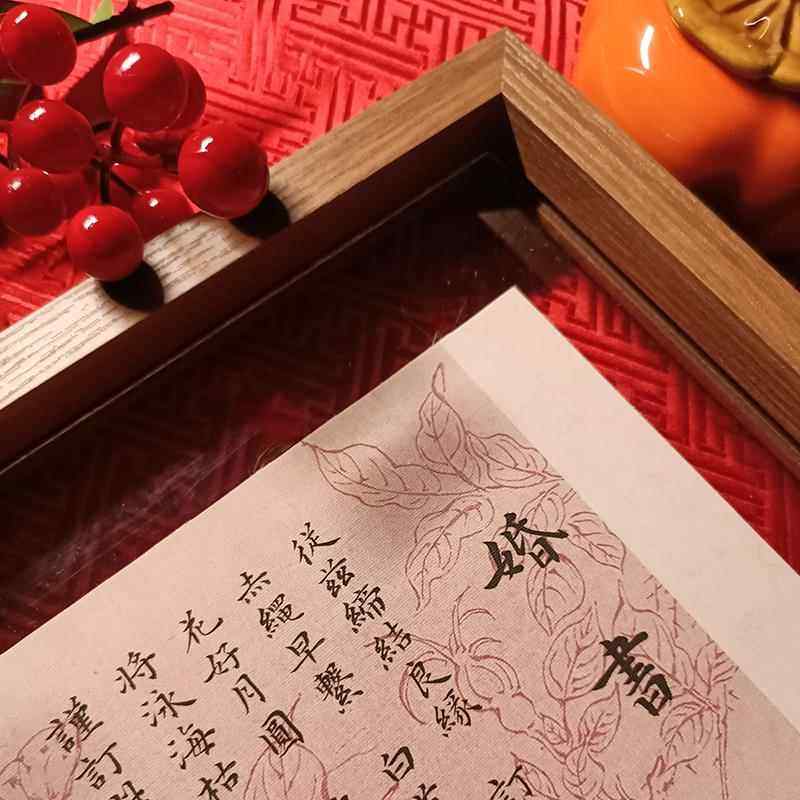 婚書
従茲締結良緣 訂
赤繩早繫 白
花好月圓
將泳海枯
謹訂